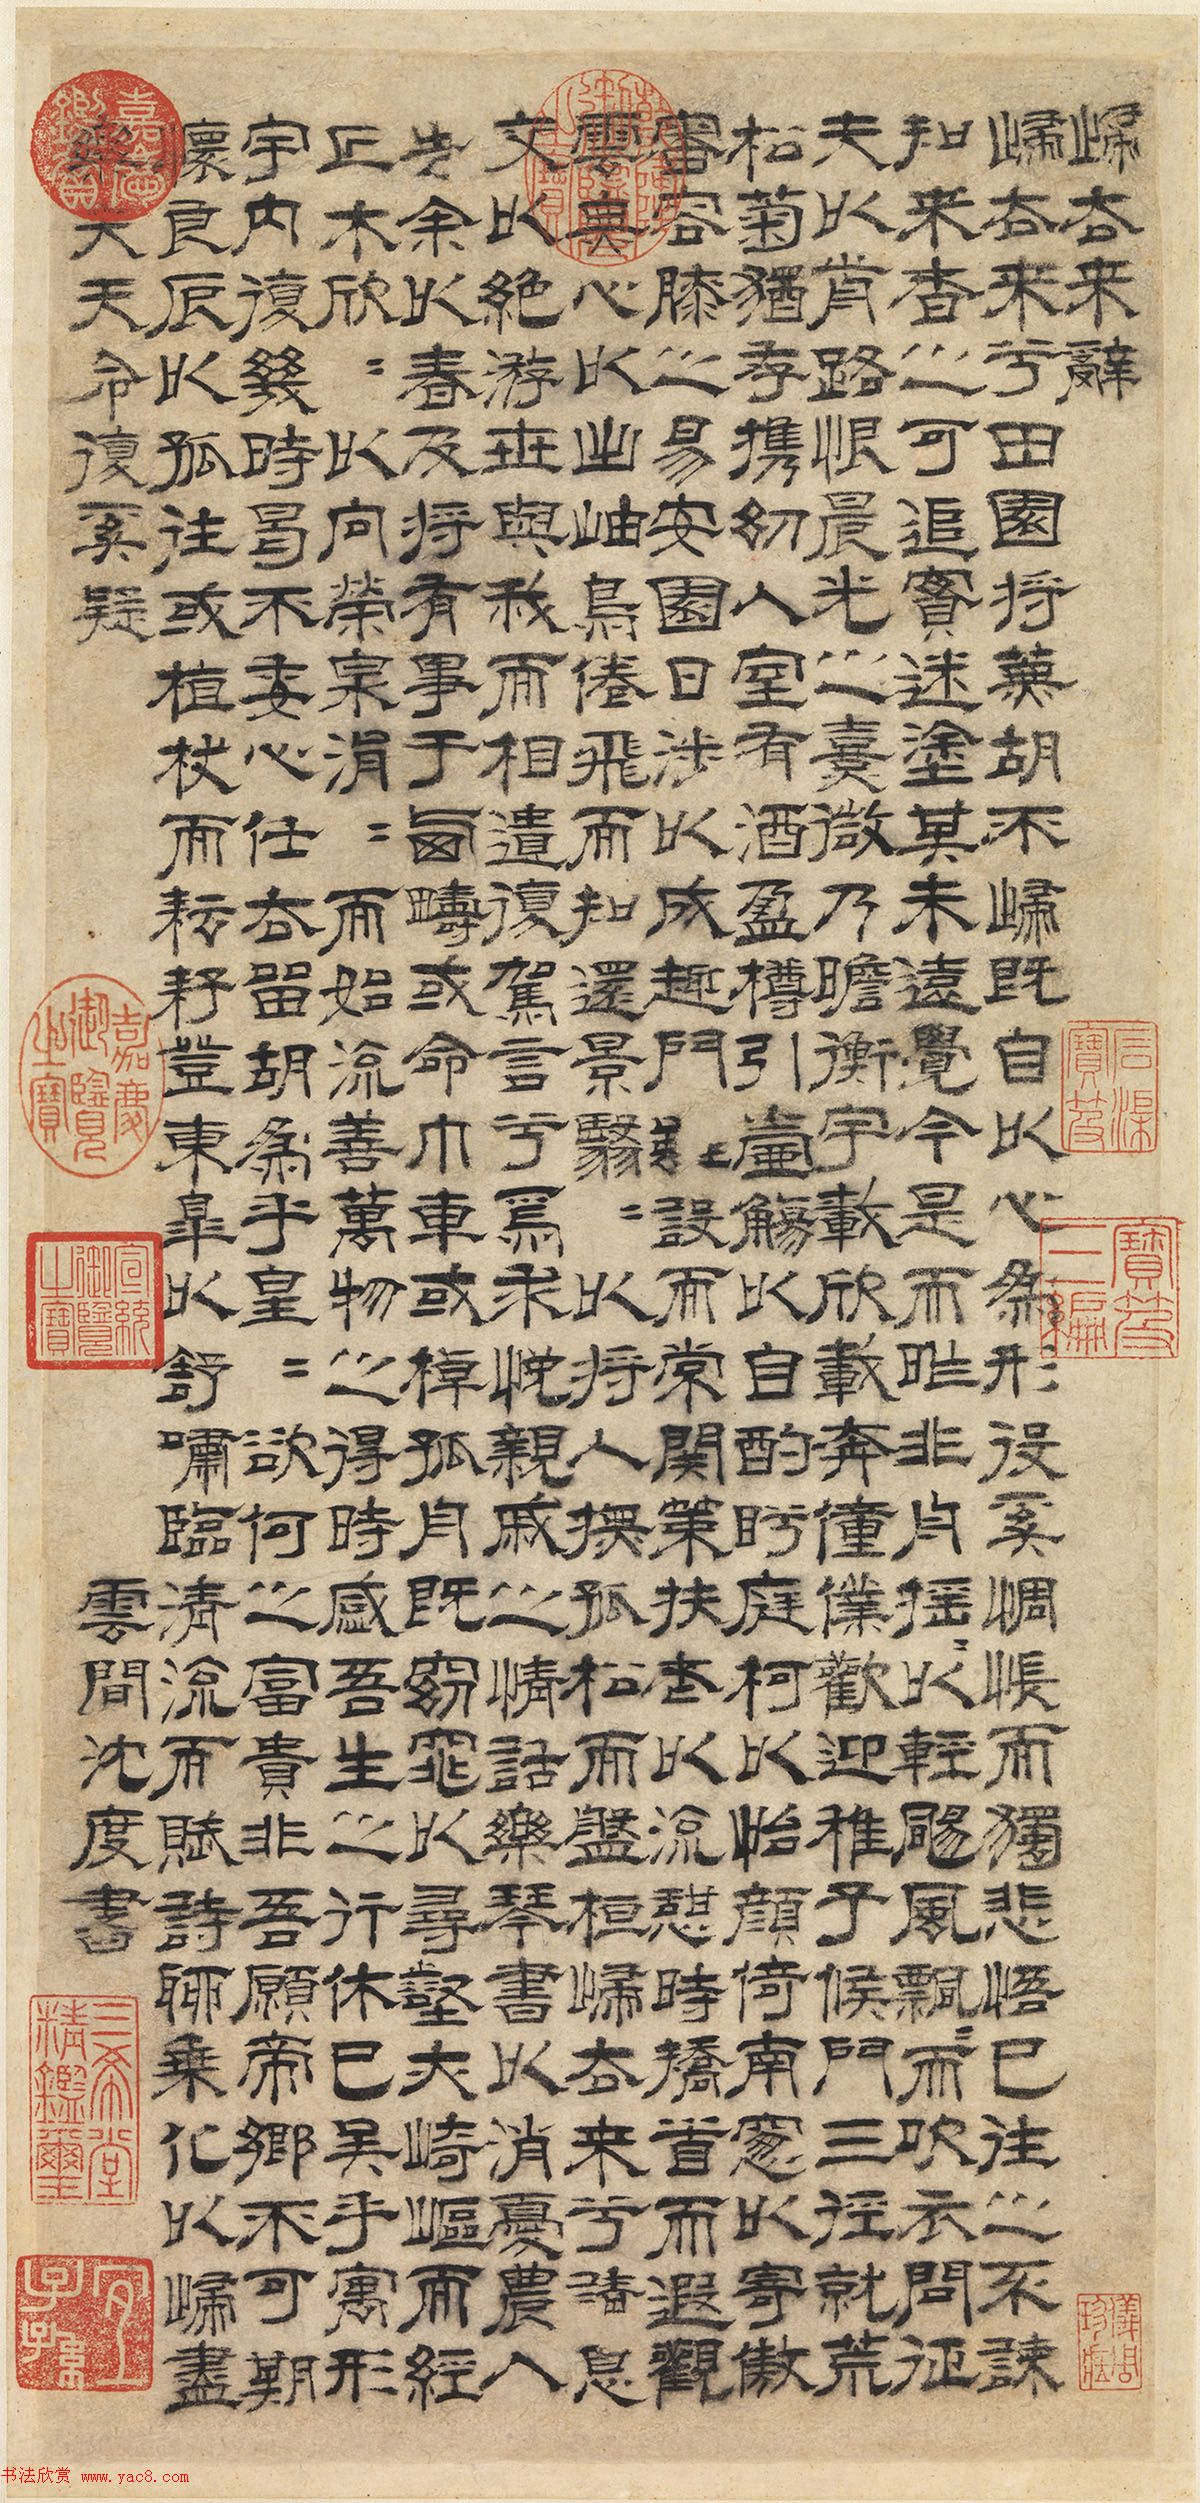 歸去来辭
歸去来兮田園将蕪胡不歸既自以心為形役奚惆悵而獨悲悟已往之不諫
知来者之可追實迷塗其未遠覺今是而昨非舟摇〻以輕颺風飄〻而吹衣問征
夫以前路恨晨光之熹微乃瞻衡宇載欣載奔僮僕歡迎稚子候門三徑就荒
松菊猶存携幼入室有酒盈樽引壺觴以自酌眄庭柯以怡顏倚南窓以寄傲
審容膝之易安園日涉以成趣門雖設而常関策扶老以流憩時矯首而遐觀
雲無心以出岫鳥倦飛而知還景翳〻以将入撫孤松而盤桓歸去来兮請息
交以絶游世與我而相遺復駕言兮焉求悅親戚之情話樂琴書以消憂農人
告余以春及将有事于西疇或命巾車或棹孤舟既窈窕以尋壑亦崎嶇而經
丘木欣〻以向榮泉涓〻而始流善萬物之得時感吾生之行休已矣乎寓形
宇内復幾時曷不委心任去留胡為乎皇〻欲何之富貴非吾願帝鄉不可期
懷良辰以孤往或植杖而耘耔登東皋以舒嘯臨清流而賦詩聊乗化以歸盡
樂夫天命復奚疑
雲間沈度書
嘉慶鑑賞
石渠寶笈
寶笈三編
嘉慶御覽之寶
宣統御覽之寶
三希堂精鑑璽
宜子孫
书法欣赏 www.yac8.com